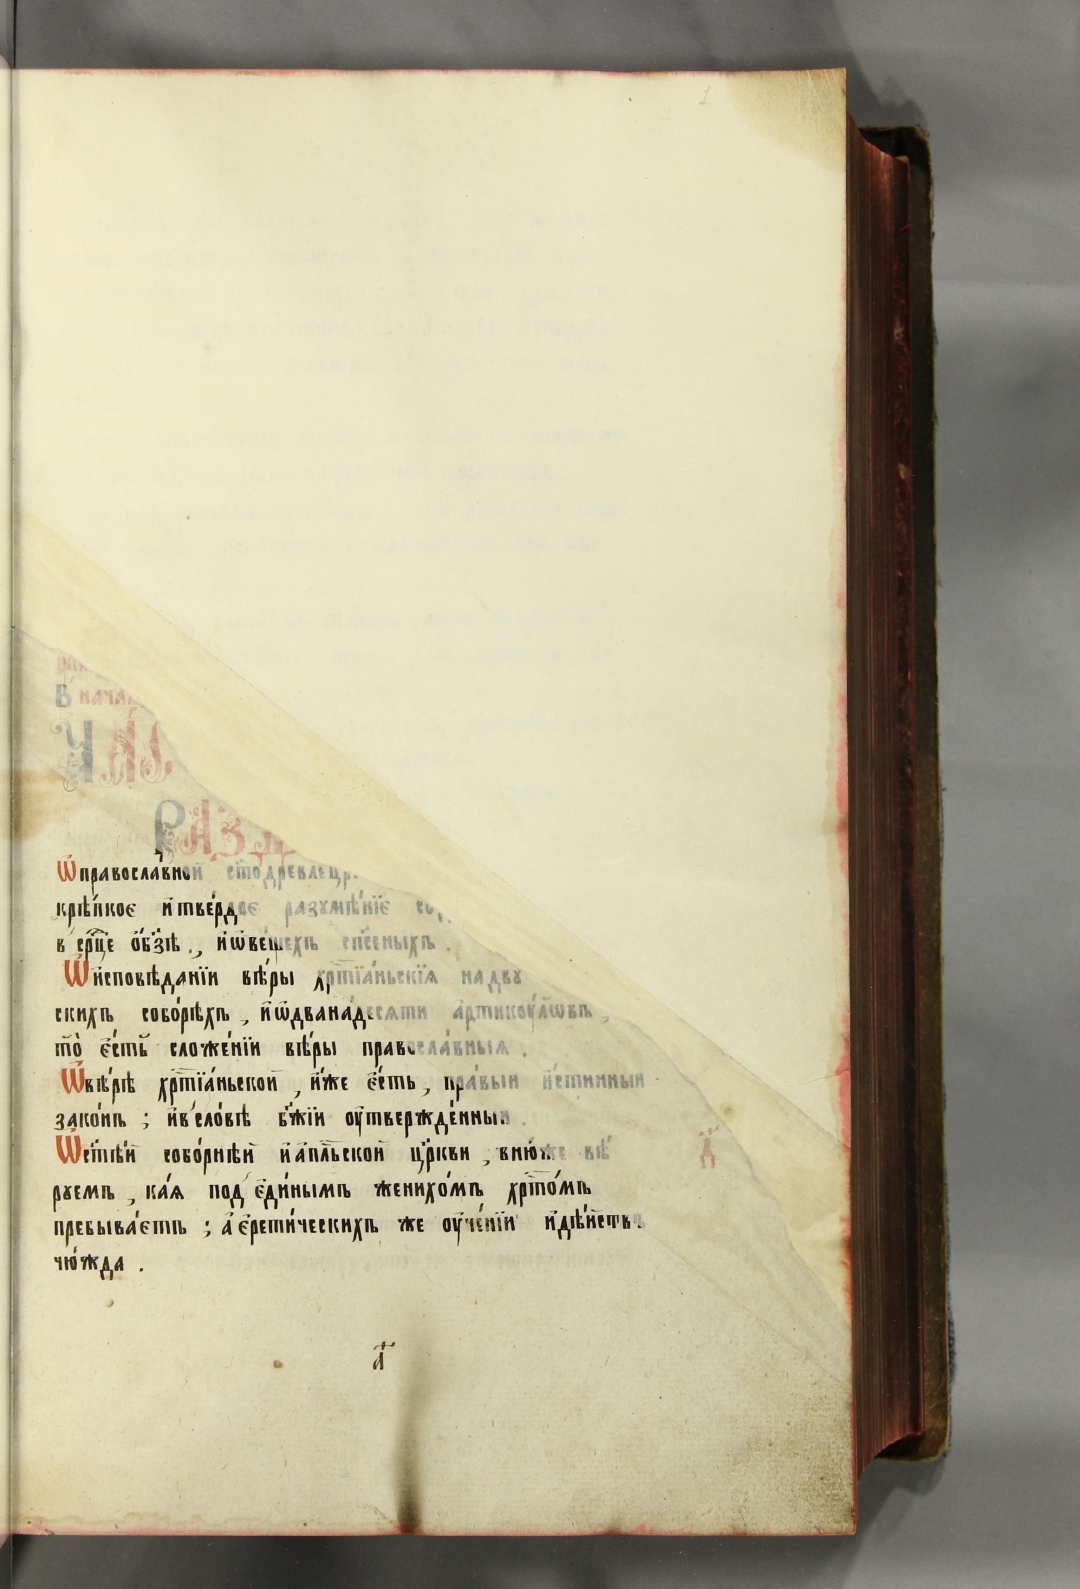 1
В нача
РАЗД
Ѡправосла́вной ст҃одревлецр
крѣ́пкое и҆тве́рдое разꙋмѣ́нїе
в ср҃це ѻ҆бз҃ѣ . ,
Ѡи҆сповѣ́данїи вѣ́ры хрⷭ҇тїа́ньскїѧ надвꙋ
скихъ собо́рѣхъ , и҆ѿдвана́десѧти а҆ртикꙋ́лѡвъ ,
то̀ є҆́сть сложе́нїи вѣ́ры правосла́вныѧ .
Ѡвѣ́рѣ хрⷭ҇тїа́ньской , и҆́же є҆́сть , пра́выи и҆́стинныи
зако́нъ ; и҆в сло́вѣ бж҃їи ᲂу҆твержде́нныи .
Ѡст҃ѣ́й собо́рнѣй и҆а҆пⷭ҇льской цр҃кви , вню́же вѣ́
рꙋемъ , ка́ѧ под є҆ди́нымъ женихо́мъ хрⷭ҇то́мъ
пребыва́етъ ; а҆є҆рети́ческихъ же ᲂу҆че́нїи и҆дѣ́йствъ
чю́жда .
д҃
а҃